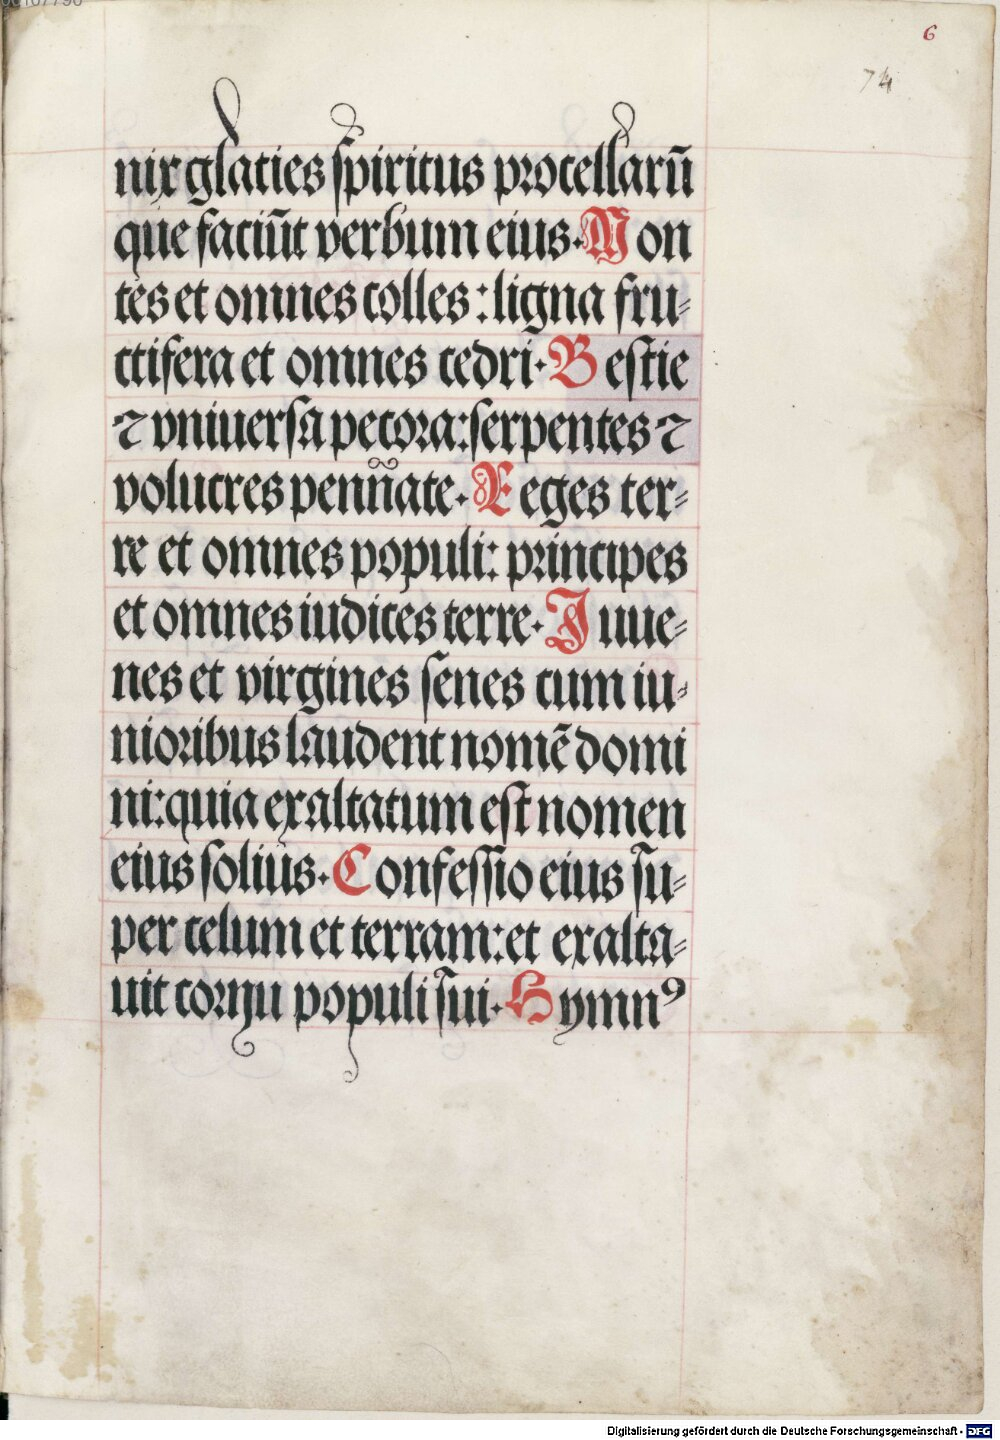 6
74
nix glacies spiritus procellarū
que faciūt verbum eius. Mon
tes et omnes colles : ligna fru-
ctifera et omnes cedri. Bestie
⁊ vniuersa pecora: serpentes ⁊
volucres pennate. Reges ter-
re et omnes populi: principes
et omnes iudices terre. Iuue-
nes et virgines senes cum iu-
nioribus laudent nomē domi
ni: quia exaltatum est nomen
eius solius. Confessio eius su-
per celum et terram: et exalta-
uit cornu populi sui. Hymnꝰ
Digitalisierung gefördert durch die Deutsche Forschungsgemeinschaft - DFG